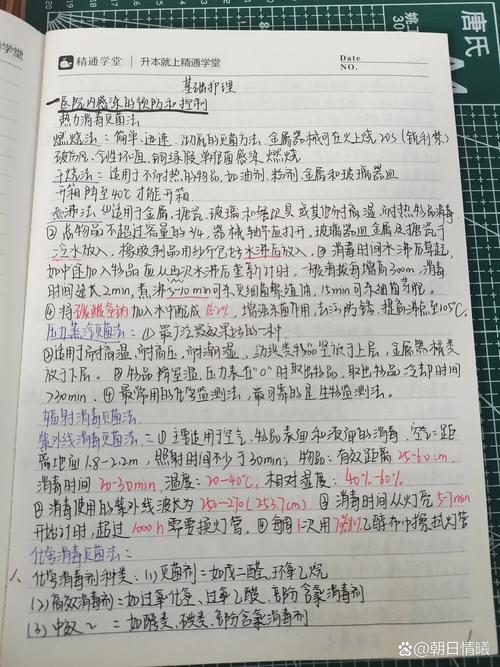 精通学堂 | 升本就上精通学堂
Date
NO.
基础护理
一医院内感染的预防和控制
热力消毒灭菌法
燃烧法：简单、迅速、彻底的灭菌方法. 金属器械可在火上烧20s（锐利禁）
破伤风、气性坏疽、铜绿假单胞菌感染. 燃烧
干烤法：适用于不耐热的物品，如油剂，粉剂，金属和玻璃器皿
开箱降至40℃才能开箱.
煮沸法 ①适用于金属、搪瓷、玻璃和餐饮具或其他耐高温，耐热物品消毒
②高物品不超过容量的3/4，器械轴节应打开，玻璃器皿金属及搪瓷于
冷水放入，橡胶制品用纱布包好水沸后放入. ③消毒时间水沸后算起，
如中途加入物品应从再次水沸后重新计时，一般海拔每增高300m，消毒
时间延长2min，煮沸5-10min可杀灭细菌繁殖体，15min可杀细菌芽胞.
④将碳酸氢钠加入水中配成1%-2%，增强杀菌作用，去污防锈，提高沸点至105℃.
压力蒸汽灭菌法：①最广泛最效果好的一种
②适用于耐高温，耐高压，耐潮湿，纺织类物品竖放于上层，金属器械类
放于下层. ③物品降室温，压力表在“0”时取出物品，取出物品冷却时间
>30min. ④最常用的化学监测法，最可靠的是生物监测法.
辐射消毒灭菌法.
紫外线消毒灭菌法：①主要适用于空气、物品表面和液体的消毒. 空气：距
离地面1.8-2.2m，照射时间不少于30min；物品：有效距离25-60cm.
消毒时间20-30min，温度：20-40℃，相对湿度：40%-60%
②消毒使用的紫外线波长为250-270（253.7cm）③消毒时间从灯亮5-7min
开始计时，超过1000h需要换灯管. ④每周1次用 乙醇布巾擦拭灯管
化学消毒灭菌法：
化学消毒剂种类：(1)灭菌剂=如戊二醛，环氧乙烷
(2)高效消毒剂=如过氧化氢、过氧乙酸、部分含氯消毒剂
(3)中效〃=如醇类、碘类、部分含氯消毒剂
唐氏
@朝日情曦